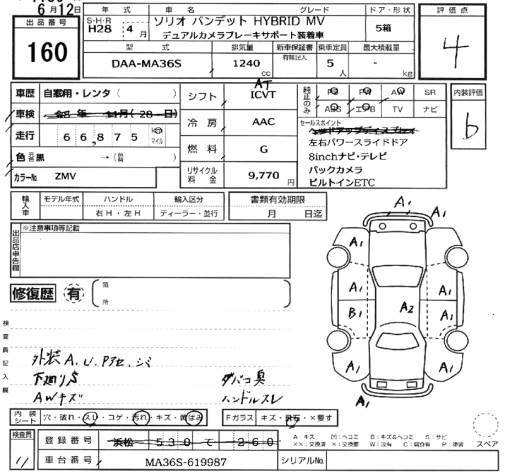 6月12日
出品番号
160
年式
車名
グレード
ドア・形状
評価点
S・H・R
H28 4月
ソリオ バンデット HYBRID MV
デュアルカメラブレーキサポート装着車
5箱
4
型式
排気量
新車保証書
乗車定員
最大積載量
DAA-MA36S
1240 cc
有限記入
5 人
- kg
車歴 自家用・レンタ ( )
シフト
AT
ICVT
純正のみ
PS PW AW SR
ABS エアB TV ナビ
内装評価
b
車検
冷房
AAC
セールスポイント
ヘッドアップディスプレス
左右パワースライドドア
8inchナビ・テレビ
バックカメラ
ビルトインETC
走行 66,875 km マイル
燃料
G
色 黒 → ( )
リサイクル料金
9,770円
カラーNo ZMV
輸入車
モデル年式
ハンドル
輸入区分
書類有効期限
右H・左H
ディーラー・並行
月 日迄
出品店申告欄
※注意事項等記載
修復歴 有
箇所
検査員記入欄
外装 A、U、Pアセ、シミ
下廻りS
AWキズ
タバコ臭
ハンドルスレ
A1
A1 A1
A1 A1
A2
B1 A1
A1 A1
A1
内装シート
穴・破れ・スレ・コゲ・汚れ・キズ・黄ばみ
Fガラス キズ・飛石・×要す
スペア
検査員
11
登録番号 浜松 530 て 260
車台番号 MA36S-619987
シリアルNo.